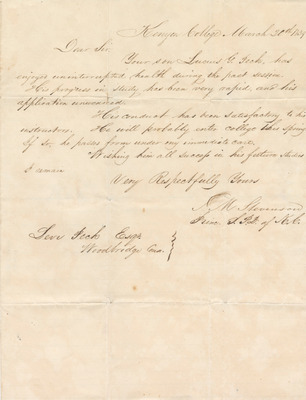 Kenyon College March 30th
Dear Sir
Your son Lucius G. Peck, has
enjoyed uninterrupted health during the past session.
His progress in study has been very rapid, and his
application unwearied.
His conduct has been satisfactory to his
instructors. He will probably enter college this spring
if so he passes from under my immediate care.
Wishing him all success in his future studies
I remain
Very Respectfully Yours
M Stevenson
of K.C.
Levi Peck Esqr
Woodbridge Con.